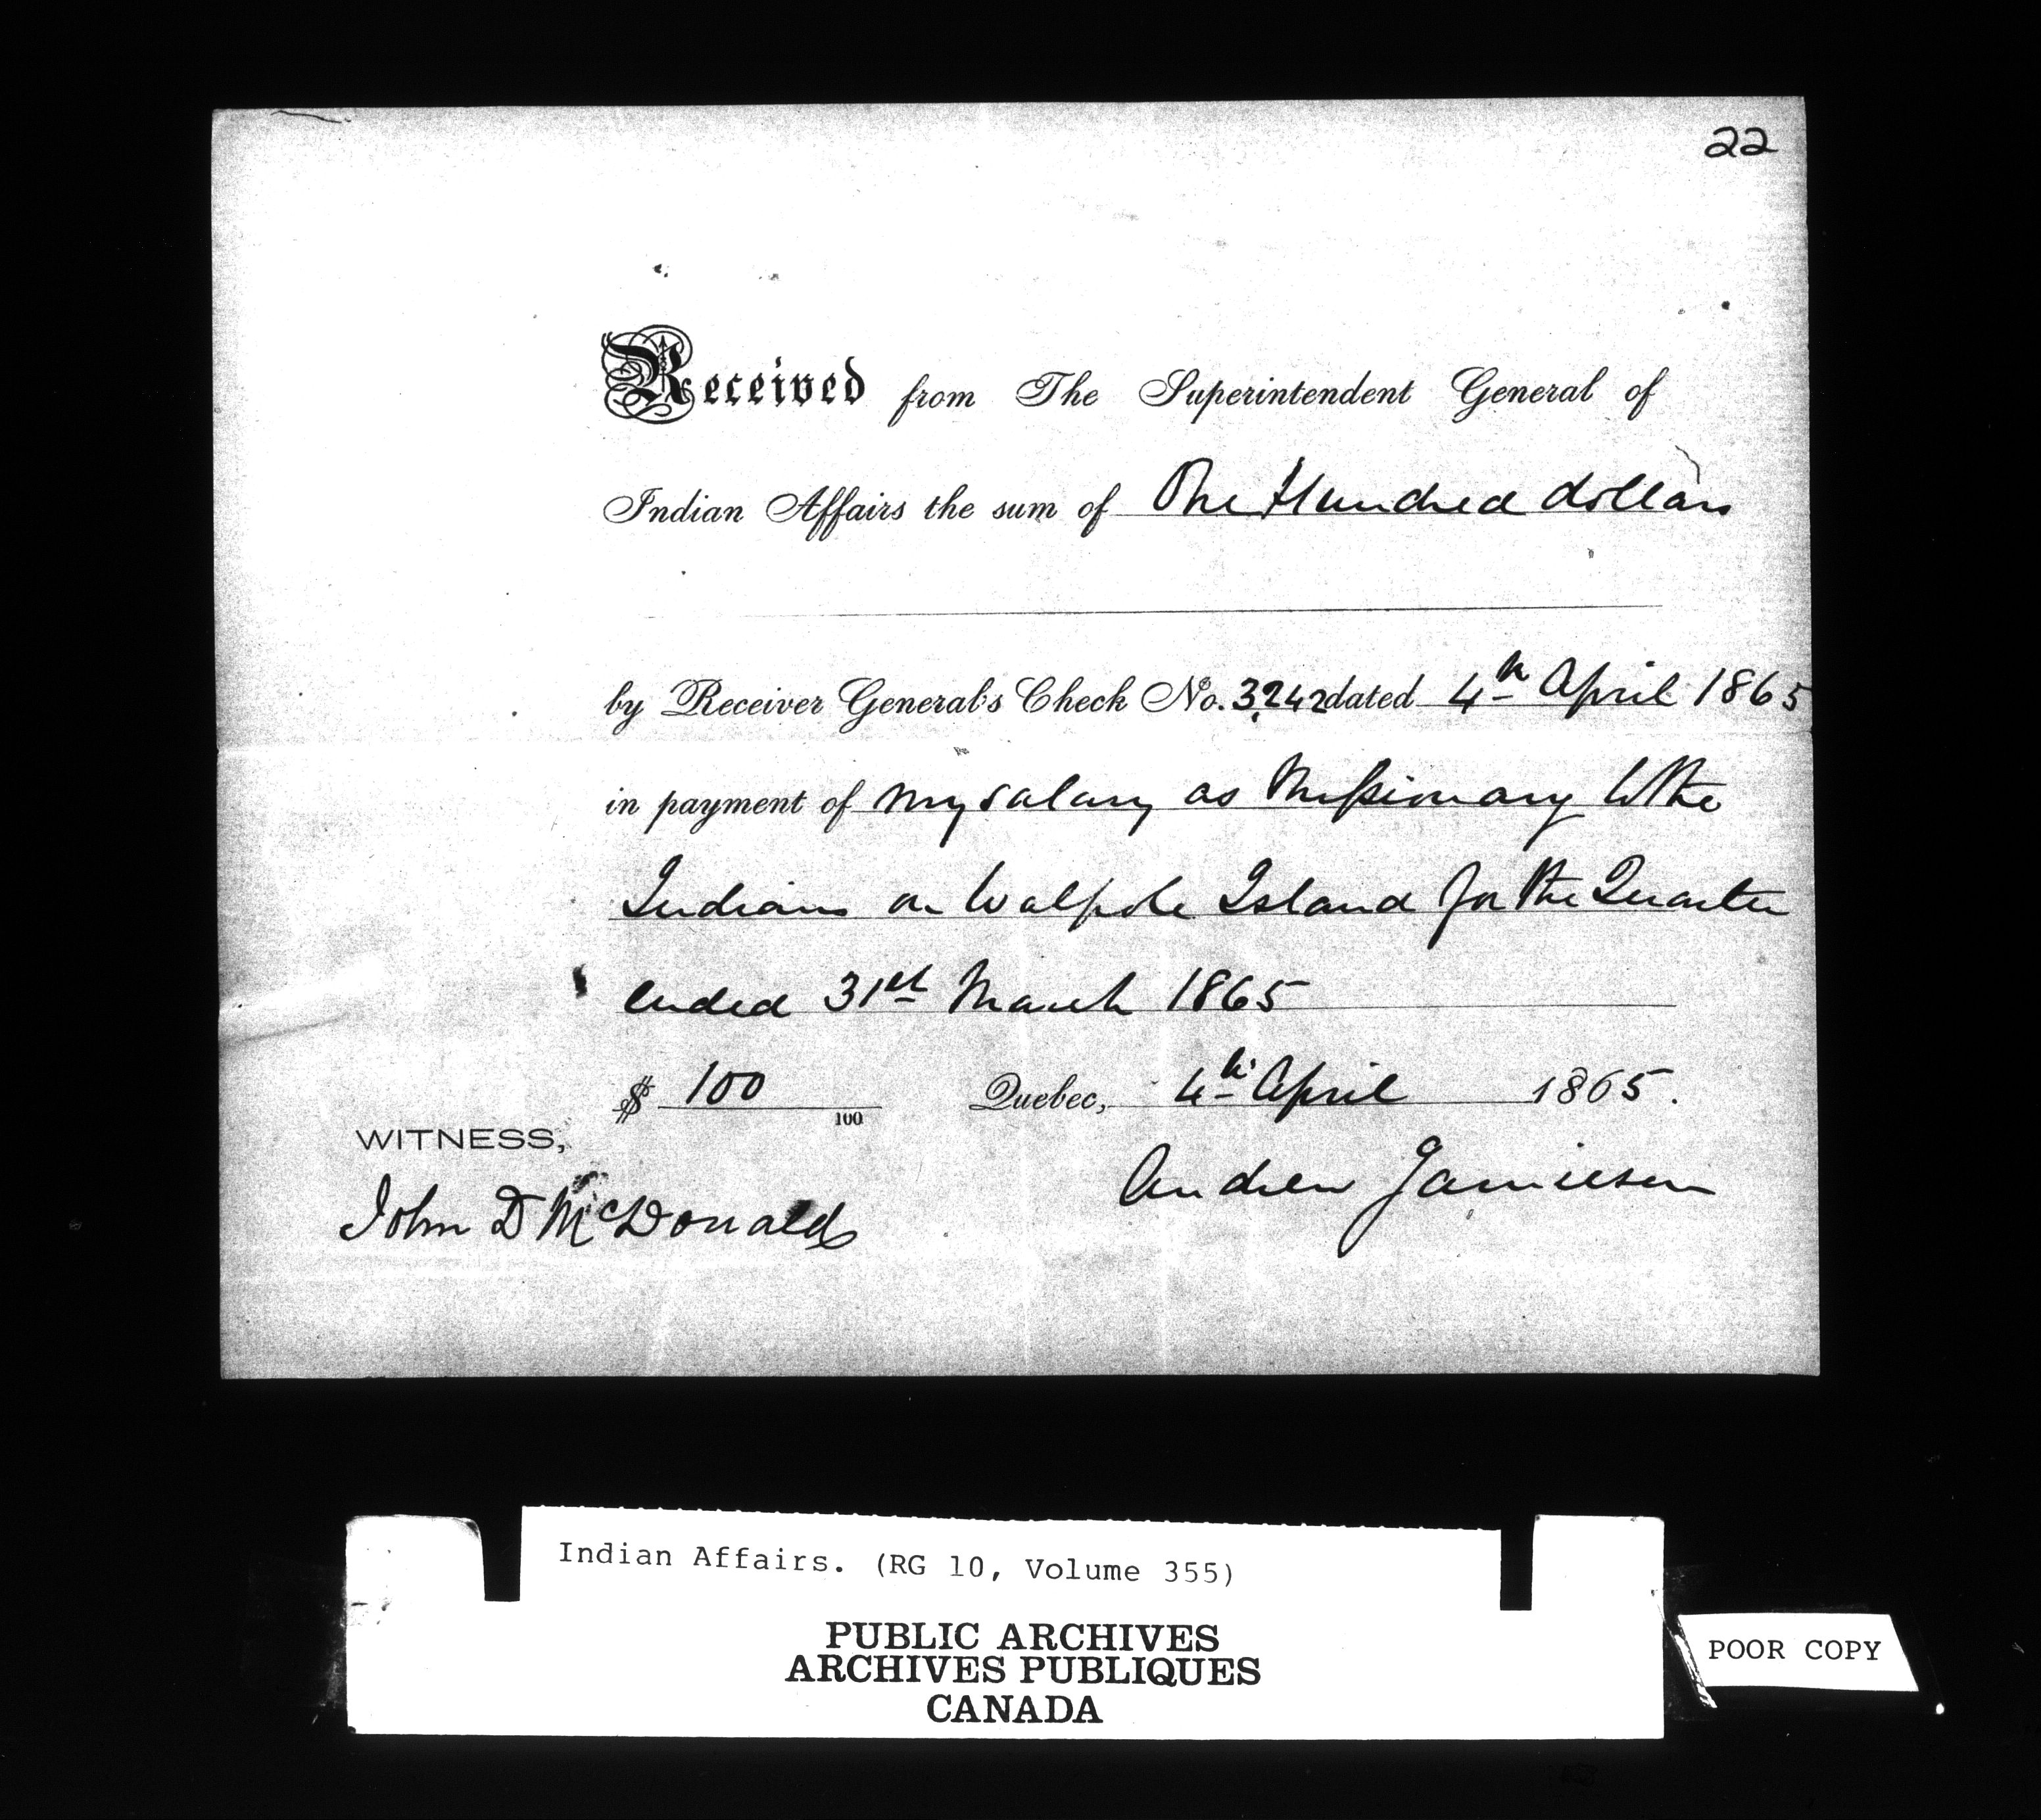 22
Received from The Superintendent General of
Indian Affairs the sum of One Hundred dollars
by Receiver General's Check No. 3,242 dated 4th April 1865
in payment of my salary as Missionary to the
Indians on Walpole Island for the Quarter
ended 31st March 1865
$ 100 100 Quebec, 4th April 1865.
WITNESS,
Andrew Jamieson
John D McDonald
Indian Affairs. (RG 10, Volume 355)
PUBLIC ARCHIVES
ARCHIVES PUBLIQUES
CANADA
POOR COPY